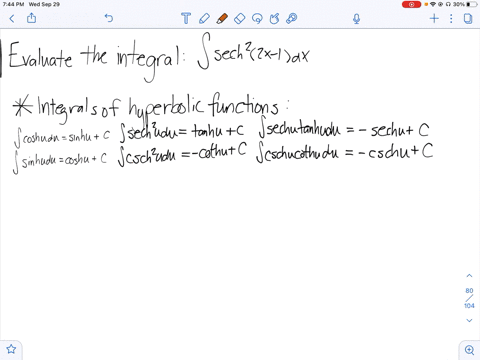 7:44 PM Wed Sep 29
30%
Evaluate the integral: ∫ sech²(2x-1)dx
* Integrals of hyperbolic functions:
∫coshudu = sinhu + C ∫sech²udu = tanhu + C ∫sechutanhudu = - sechu + C
∫sinhudu = coshu + C ∫csch²udu = -cothu + C ∫cschucothudu = - cschu + C
80
/
104